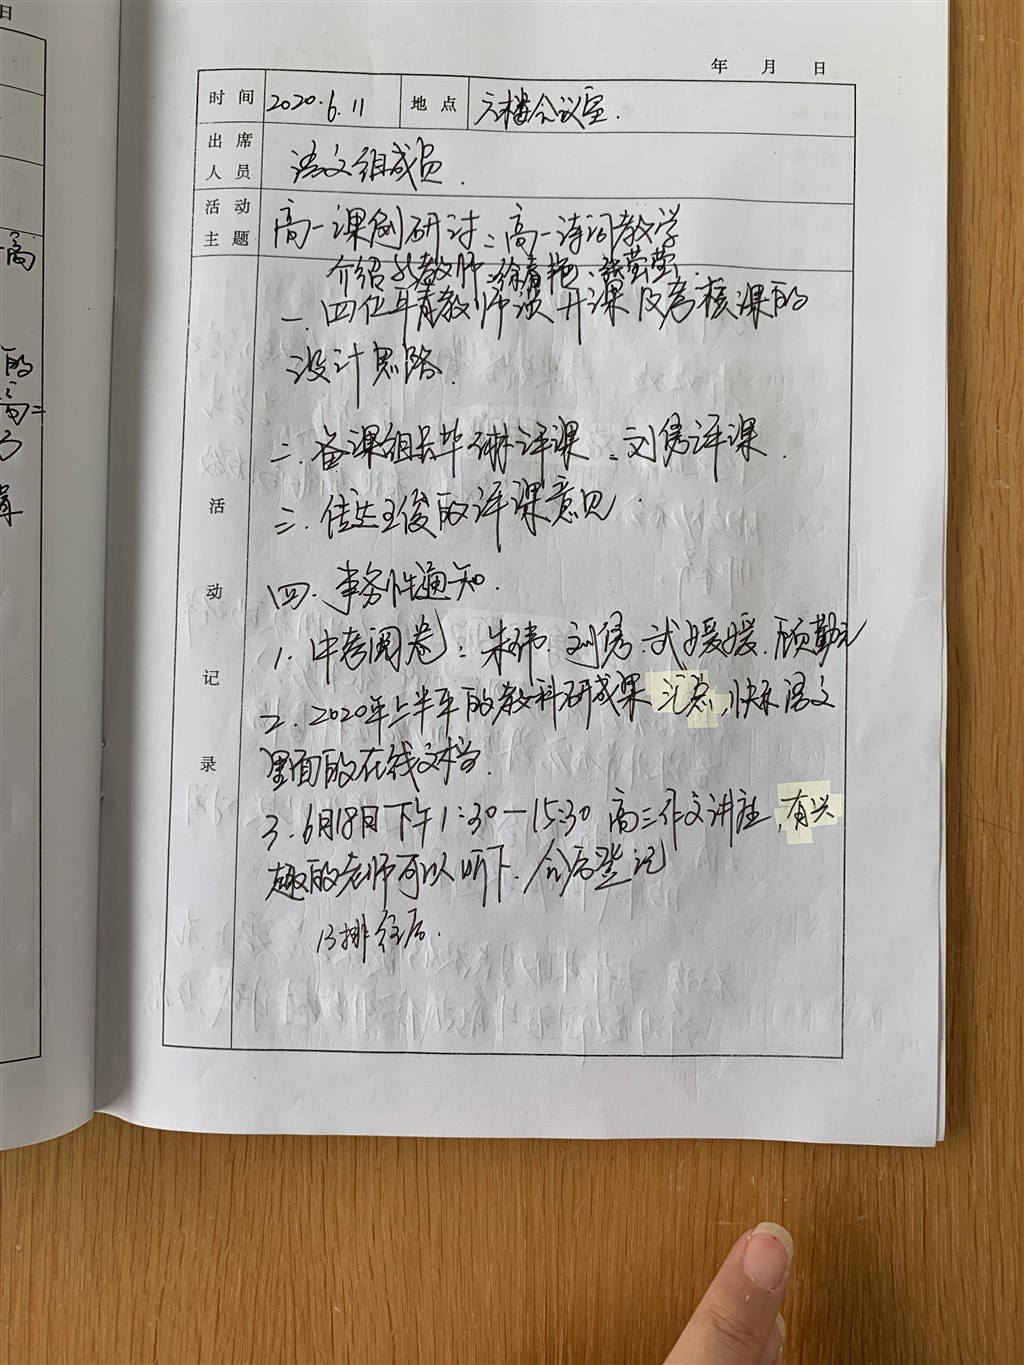 日
年 月 日
时 间 2020.6.11 地 点 六楼会议室.
出 席
人 员 语文组成员.
活 动
主 题 高一课例研讨:高一诗词教学
介绍新教师:徐青艳、张莹莹.
一.四位年青教师谈开课及考核课的
设计思路.
二.备课组长毕琳评课、刘隽评课.
三.传达王俊的评课意见.
四.事务性通知.
1.中考阅卷:朱玮.刘隽.武媛媛.顾勤
2.2020年上半年的教科研成果汇总,快乐语文
里面的在线文档.
3.6月18日下午1:30—15:30 高三作文讲座,有兴
趣的老师可以听下.会后登记
排往后.
活
动
记
录
高
的
高二